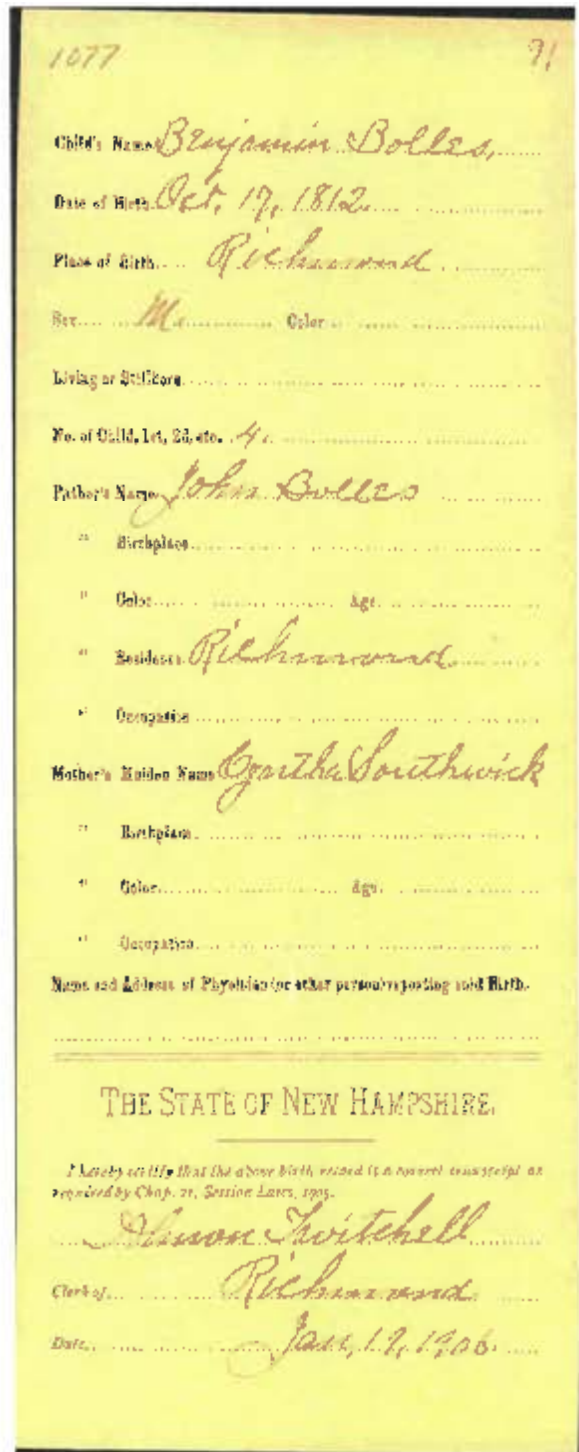 1077 91
Child's Name Benjamin Bolles,
Date of Birth Oct. 17, 1812
Place of Birth Richmond
Sex M. Color
Living or Stillborn
No. of Child, 1st, 2d, etc. 4.
Father's Name John Bolles
" Birthplace
" Color Age
" Residence Richmond
" Occupation
Mother's Maiden Name Cyntha Southwick
" Birthplace
" Color Age
" Occupation
Name and Address of Physician (or other person) reporting said Birth.
THE STATE OF NEW HAMPSHIRE.
I hereby certify that the above birth record is a correct transcript as
required by Chap. 21, Session Laws, 1905.
Almon Twitchell
Clerk of Richmond
Date Jan, 19, 1906.